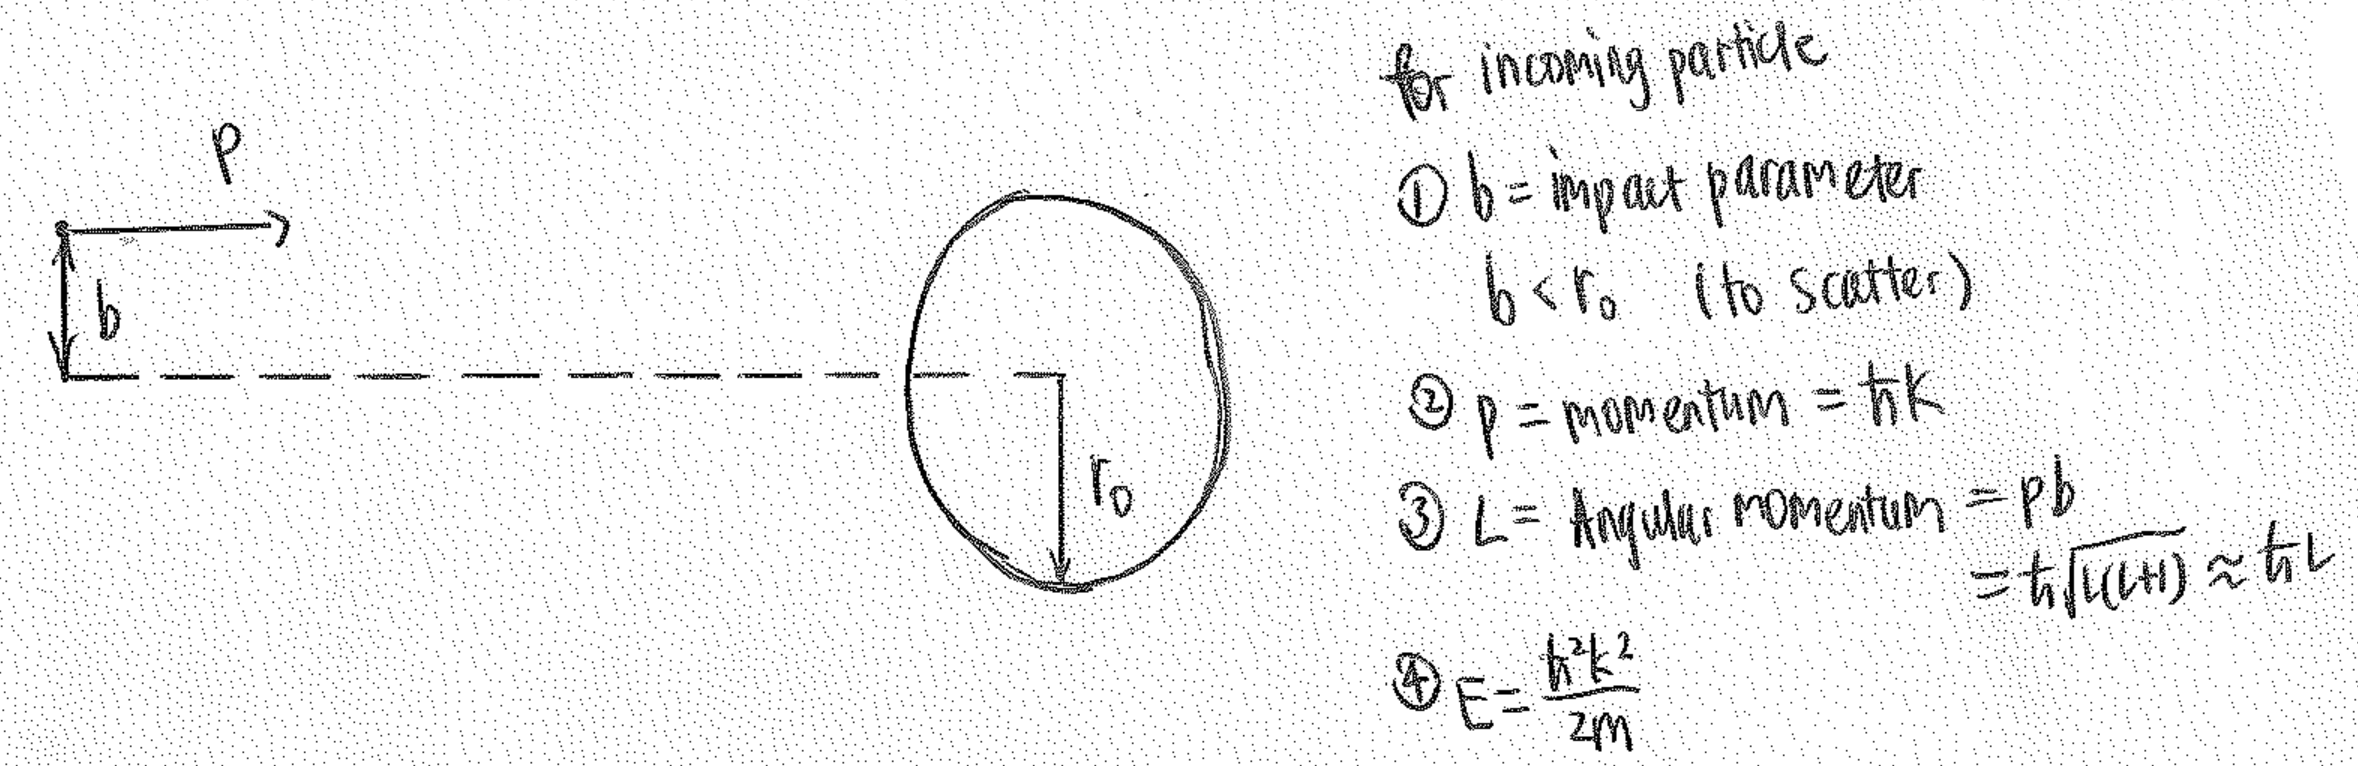 p
b
r₀
for incoming particle
① b = impact parameter
b < r₀ (to scatter)
② p = momentum = ħk
③ L = Angular momentum = pb
= ħ√L(L+1) ≈ ħL
④ E = ħ²k²/2m